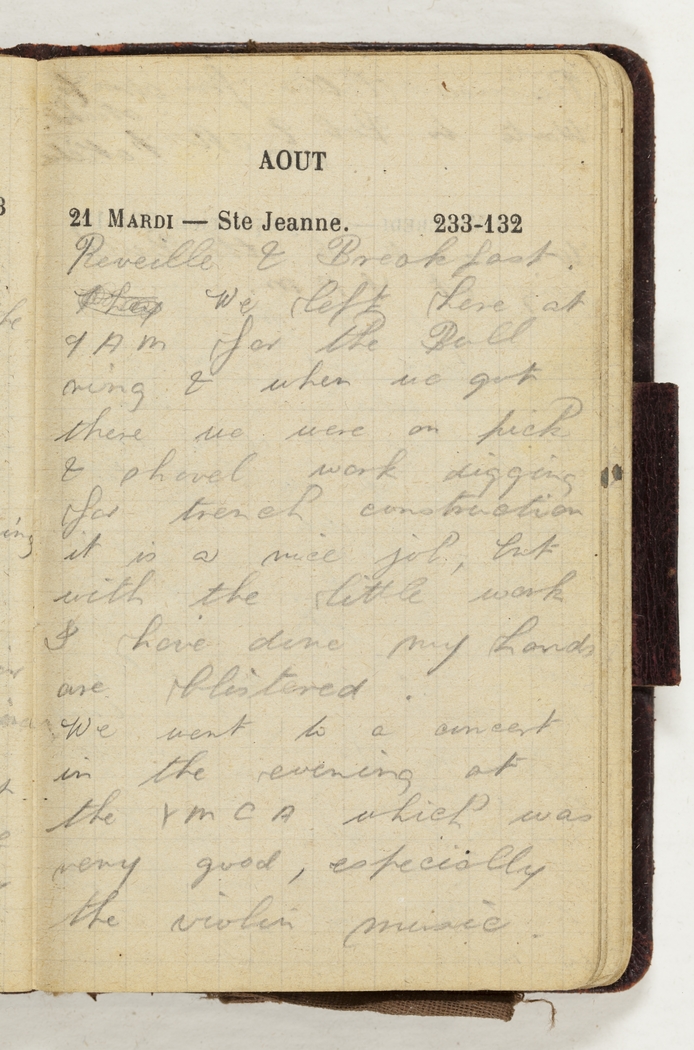 AOUT
21 MARDI — Ste Jeanne. 233-132
Reveille & Breakfast.
We left here at
9 AM for the Bull
ring & when we got
there we were on pick
& shovel work digging
for trench construction
it is a nice job, but
with the little work
I have done my hands
are blistered.
We went to a concert
in the evening at
the YMCA which was
very good, especially
the violin music.